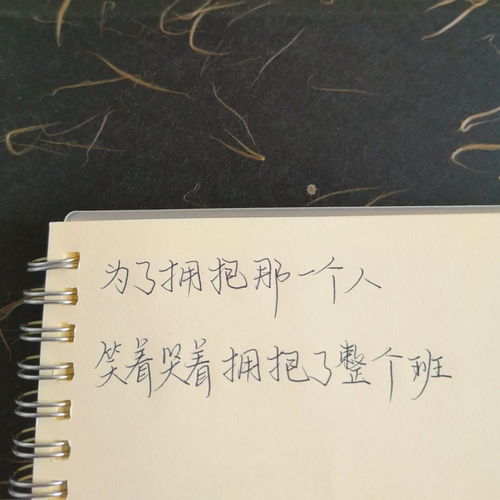 为了拥抱那一个人
笑着哭着拥抱了整个班